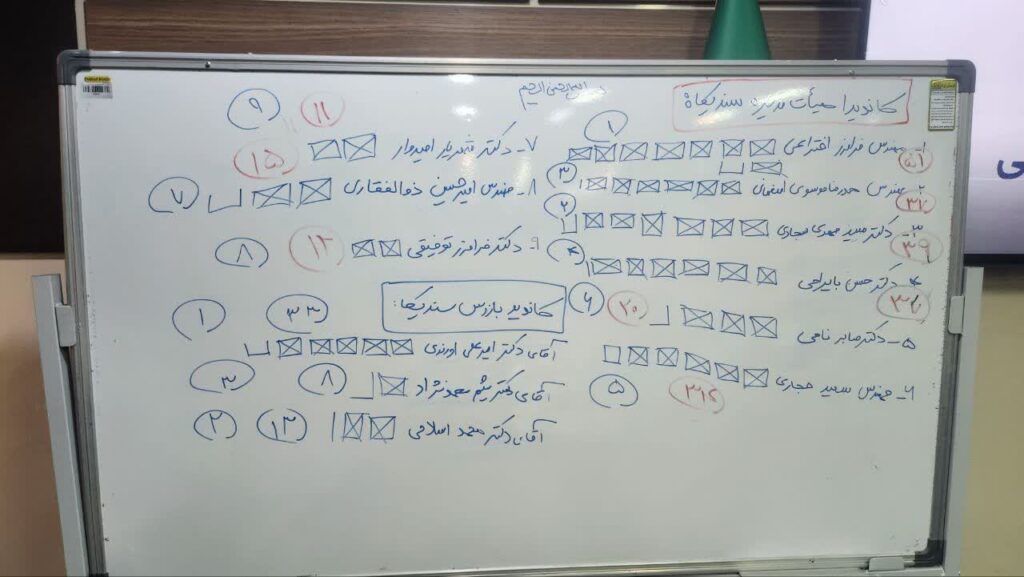 بسم الله الرحمن الرحیم
کاندیدا هیأت مدیره سندیکا
۱- مهندس فرامرز اختراعی
۱
۵۱
۲- مهندس حمیدرضا موسوی اصفهانی
۳
۳۷
۳- دکتر سید مهدی حجازی
۲
۳۹
۴- دکتر حسن بابیراحی
۴
۵- دکتر صابر نامی
۲۰
۶
۶- مهندس سعید حجازی
۵
۷- دکتر شهریار امیدوار
۱۱
۹
۸- مهندس امیرحسین ذوالفقاری
۱۵
۷
۹- دکتر فرامرز توفیقی
۱۲
۸
کاندید بازرس سندیکا:
آقای دکتر امیرعلی اوروزی
۲۳
۱
آقای دکتر میثم محمدنژاد
۸
۳
آقای دکتر محمد اسلامی
۱۳
۲